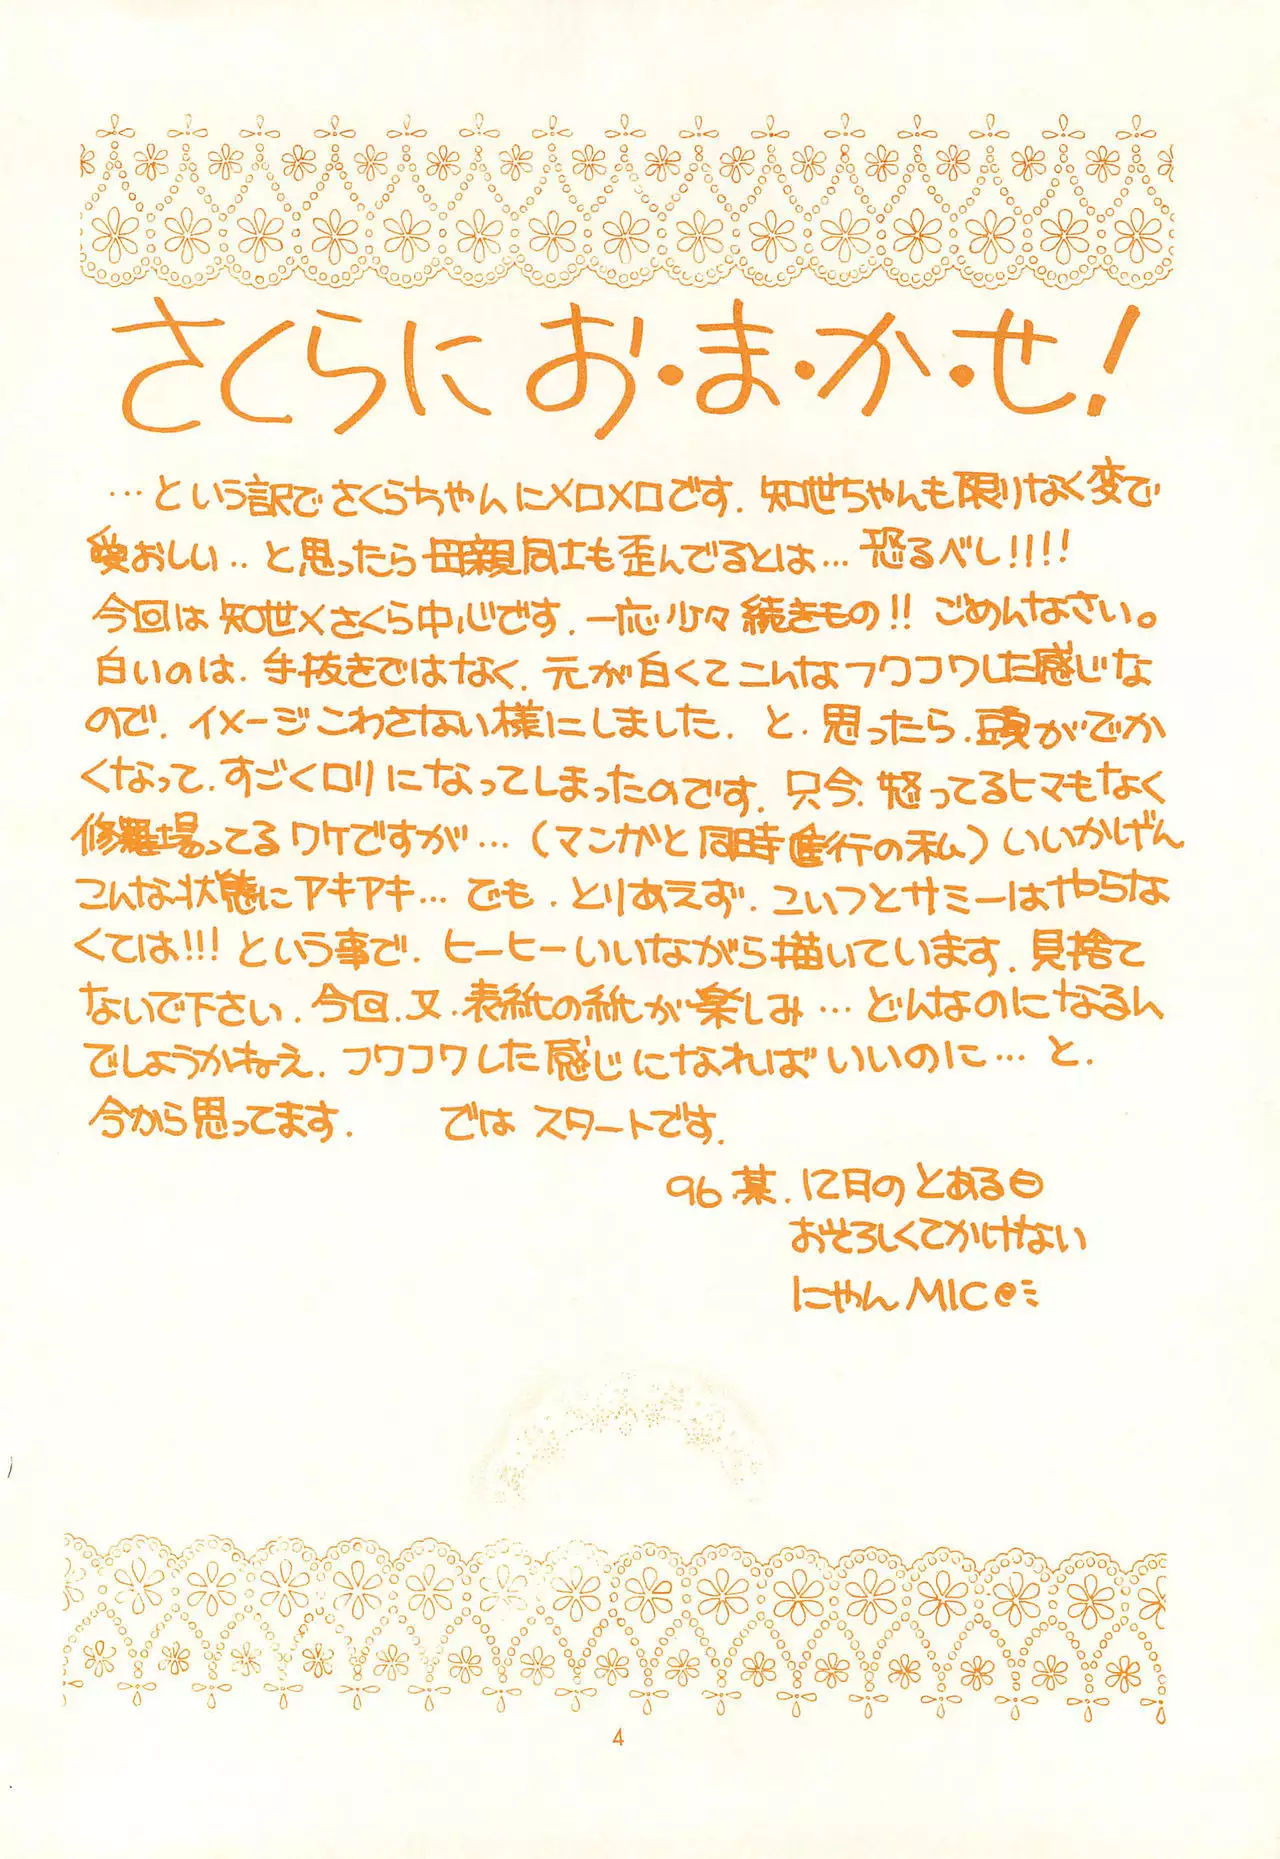 さくらに お・ま・か・せ!
…という訳でさくらちゃんにメロメロです. 知世ちゃんも限りなく変で
愛おしい‥と思ったら母親同士も歪んでるとは… 恐るべし!!!!
今回は知世×さくら中心です. 一応少々続きもの!! ごめんなさい。
白いのは. 手抜きではなく. 元が白くてこんなフワコワした感じな
ので. イメージこわさない様にしました. と. 思ったら. 頭がでか
くなって. すごくロリになってしまったのです. 只今. 怒ってるヒマもなく
修羅場ってるワケですが… (マンガと同時進行の私) いいかげん
こんな状態にアキアキ… でも. とりあえず. こいつとサミーはやらな
くては!!! という事で. ヒーヒーいいながら描いています. 見捨て
ないで下さい. 今回. 又. 表紙の紙が楽しみ… どんなのになるん
でしょうかねえ. フワコワした感じになればいいのに… と.
今から思ってます. では スタートです.
96 某. 12月のとある日
おそろしくてかけない
にゃんMIC
4